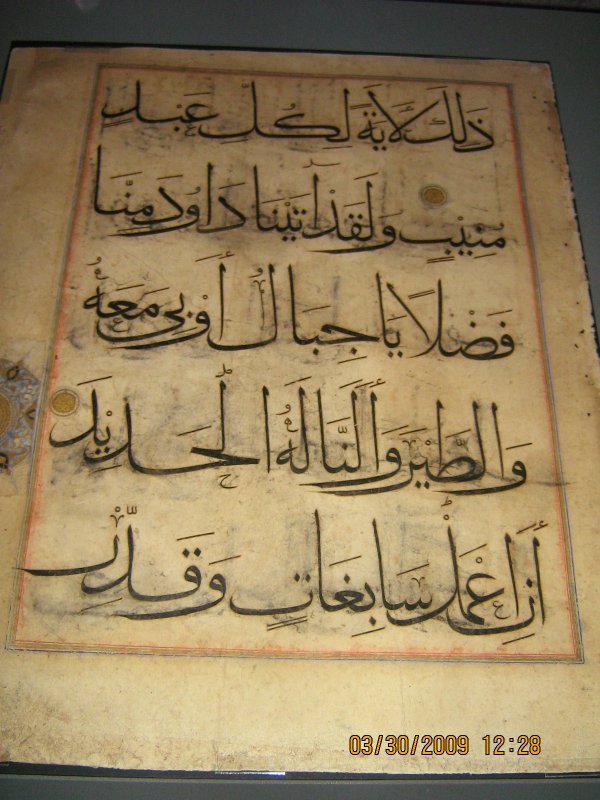 ذَلِكَ لَآيَةً لِكُلِّ عَبْدٍ
مُنِيبٍ وَلَقَدْ آتَيْنَا دَاوُدَ مِنَّا
فَضْلًا يَا جِبَالُ أَوِّبِي مَعَهُ
وَالطَّيْرَ وَأَلَنَّا لَهُ الْحَدِيدَ
أَنِ اعْمَلْ سَابِغَاتٍ وَقَدِّرْ
03/30/2009 12:28